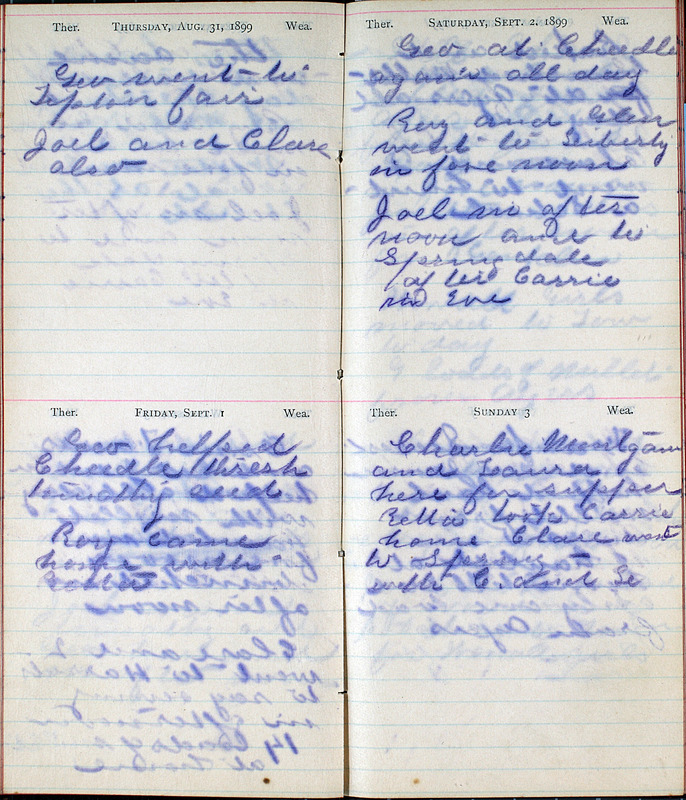 Ther. THURSDAY, AUG. 31, 1899 Wea.
Geo went to
Tipton fair
Joel and Clare
also
Ther. FRIDAY, SEPT. 1 Wea.
Geo helped
Cheedle thresh
timothy seed
Roy came
home with
Ther. SATURDAY, SEPT. 2, 1899 Wea.
Geo at Cheedle
again all day
Roy and Glen
went to Liberty
in fore noon
Joel in after
noon and to
Springdale
after Carrie
in Eve
Ther. SUNDAY 3 Wea.
Charlie
and Laura
here for supper
Retta took Carrie
home Clare went
to Spring
with C. and Le